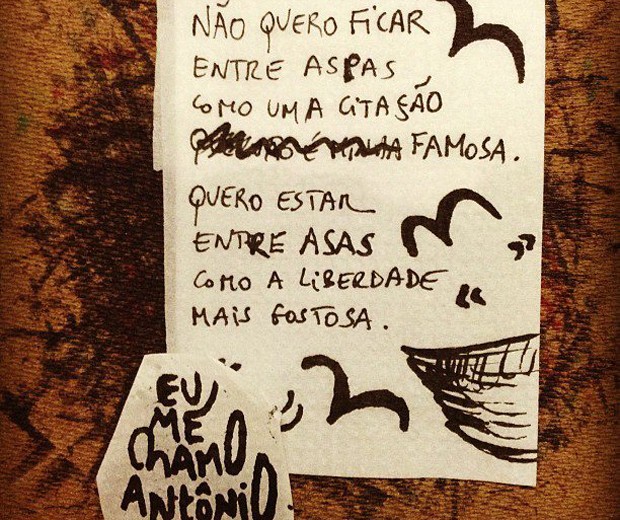 NÃO QUERO FICAR
ENTRE ASPAS
COMO UMA CITAÇÃO
FAMOSA.
QUERO ESTAR
ENTRE ASAS
COMO A LIBERDADE
MAIS GOSTOSA.
EU
ME
CHAMO
ANTÔNIO.